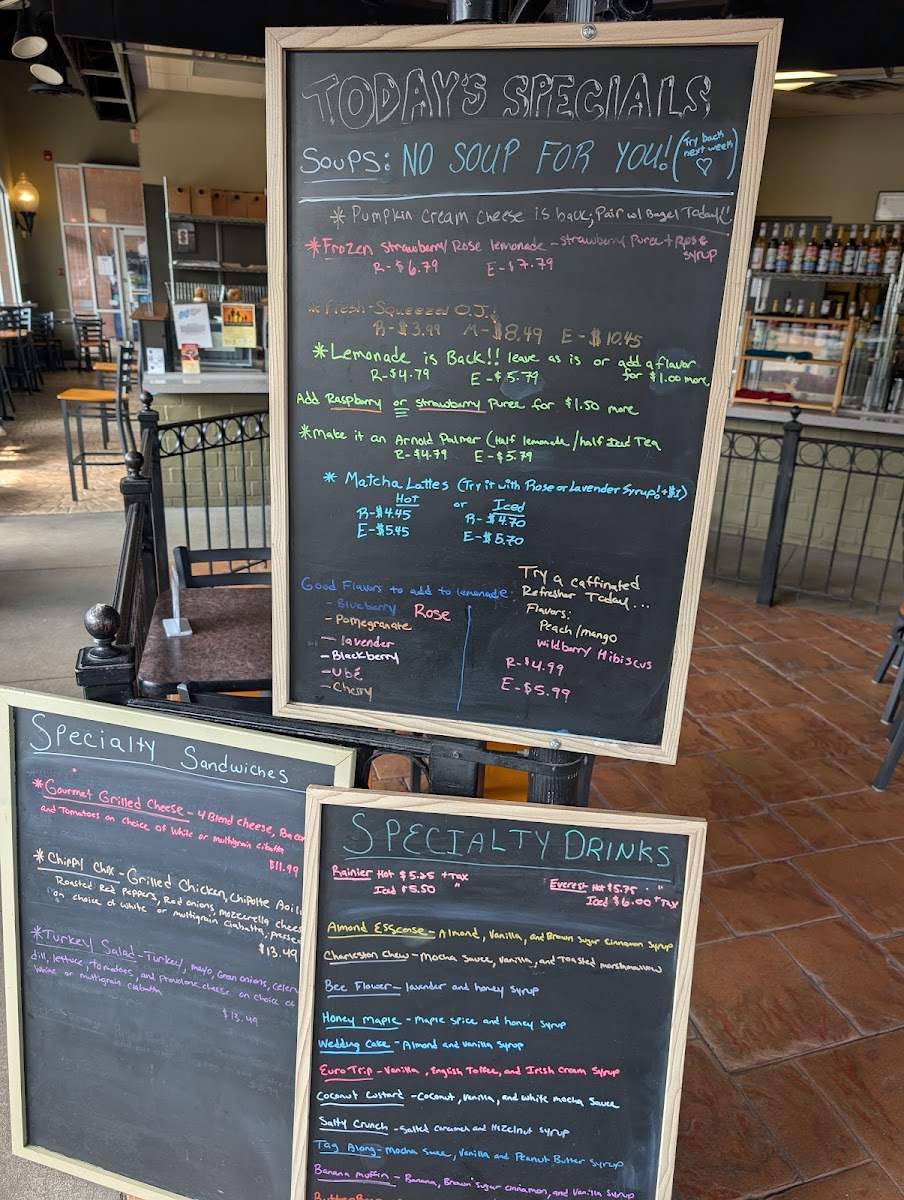 TODAY'S SPECIALS
SOUPS: NO SOUP FOR YOU! (Try back next week ♡)
* Pumpkin Cream Cheese is back; Pair w/ Bagel Today!!
* Frozen Strawberry/Rose lemonade - strawberry Puree + Rose syrup
R-$6.79 E-$7.79
* Fresh-Squeezed O.J.!
R-$3.99 M-$8.49 E-$10.45
* Lemonade is Back!! leave as is or add a flavor for $1.00 more
R-$4.79 E-$5.79
Add Raspberry or strawberry Puree for $1.50 more
* Make it an Arnold Palmer (Half lemonade/half Iced Tea
R-$4.79 E-$5.79
* Matcha Lattes (Try it with Rose or Lavender Syrup! +$1)
Hot or Iced
R-$4.45 R-$4.70
E-$5.45 E-$5.70
Good Flavors to add to lemonade:
- Blueberry Rose
- Pomegranate
- lavender
- Blackberry
- Ubé
- Cherry
Try a caffinated
Refresher Today...
Flavors:
Peach/mango
wildbarry Hibiscus
R-$4.99
E-$5.99
Specialty Sandwiches
* Gourmet Grilled Cheese - 4 Blend cheese, Bacon
and Tomatoes on choice of white or multigrain
$11.99
* Chippy Chik - Grilled Chicken, Chipotle Aoili,
Roasted Red Peppers, Red onions, mozzerella cheese
on choice of white or multigrain ciabatta, pressed
$13.49
* Turkey Salad - Turkey, mayo, Gran onions, celery
dill, lettuce, tomatoes, and provolone cheese on choice of
white or multigrain ciabatta
$13.49
SPECIALTY DRINKS
Rainier Hot $5.25 + Tax Everest Hot $5.75 "
Iced $5.50 " Iced $6.00 + Tax
Almond Esscense - Almond, Vanilla, and Brown Sugar cinnamon syrup
Charleston Chew - Mocha sauce, vanilla, and Toasted marshmallow
Bee Flower - lavender and honey syrup
Honey Maple - Maple spice and honey syrup
Wedding Cake - Almond and vanilla syrup
Euro Trip - Vanilla, English Toffee, and Irish cream syrup
Coconut Custard - Coconut, vanilla, and white mocha sauce
Salty Crunch - salted caramel and Hazelnut syrup
Tag Along - Mocha sauce, vanilla and Peanut Butter syrup
Banana Muffin - Banana, Brown sugar cinnamon, and vanilla syrup